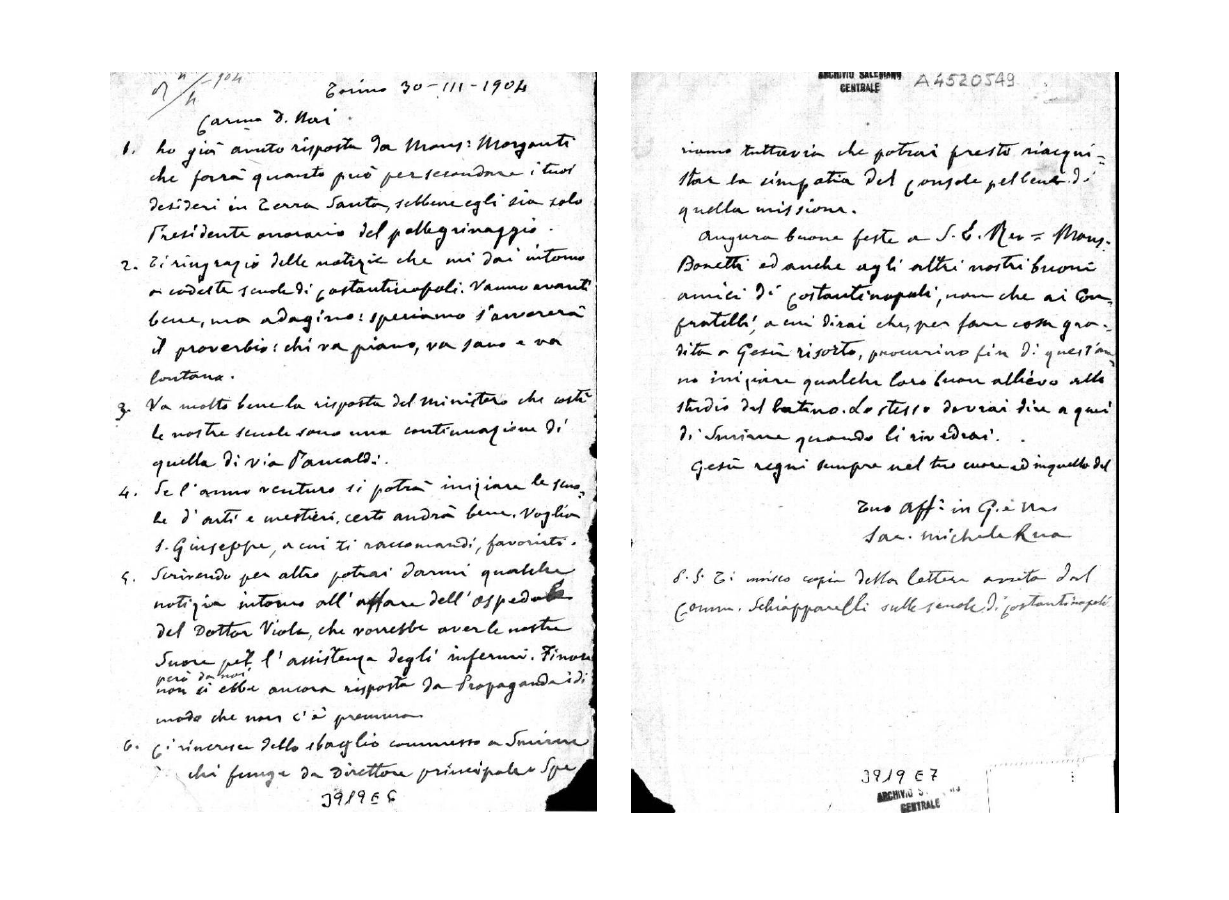 Torino 30-III-1904
Carmo D. Noi
1. ho già avuto risposta da Mons: Morganti
che farà quanto può per secondare i tuoi
desideri in Terra Santa, sebbene egli sia solo
Presidente onorario del pellegrinaggio.
2. Ti ringrazio delle notizie che mi dai intorno
a codeste scuole di Costantinopoli. Vanno avanti
bene, ma adagino: speriamo s'avvererà
il proverbio: chi va piano, va sano e va
lontano.
3. Va molto bene la risposta del Ministero che costì
le nostre scuole sono una continuazione di
quella di via Pancaldi.
4. Se l'anno venturo si potrà iniziare le scuo-
le d'arti e mestieri, certo andrà bene. Voglia
S. Giuseppe, a cui ti raccomandi, favorirti.
5. Scrivendo per altro potrai darmi qualche
notizia intorno all'affare dell'Ospedale
del Dottor Viola, che vorrebbe aver le nostre
Suore per l'assistenza degli infermi. Finora
però da noi
non si ebbe ancora risposta da Propaganda: di
modo che non c'è premura
6. Ci rincresce dello sbaglio commesso a Smirne
chi funge da Direttore principale. Spe
3919 E 6
ARCHIVIO SALESIANO
CENTRALE
A4520549
riamo tuttavia che potrai presto riacqui=
star la simpatia del Console pel bene di
quella missione.
Augura buone feste a S. E. Rev = Mons.
Bonetti ed anche agli altri nostri buoni
amici di Costantinopoli, non che ai Con-
fratelli, a cui dirai che, per fare cosa gra-
dita a Gesù risorto, procurino fin di quest'an-
no iniziare qualche loro buon allievo allo
studio del latino. Lo stesso dovrai dire a quei
di Smirne quando li rivedrai.
Gesù regni sempre nel tuo cuore ed in quello del
Tuo Aff: in G. e M.
Sac. Michele Rua
P. S. Ti unisco copia della lettera avuta dal
Comm. Schiapparelli sulle scuole di Costantinopoli
3919 E 7
ARCHIVIO
CENTRALE